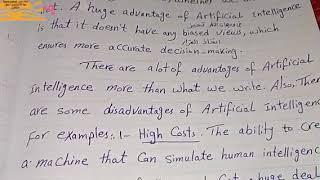 not. A huge advantage of Artificial Intelligence
is that it doesn't have any biased views, which
ensures more accurate decision_making.
There are alot of advantages of Artificial
Intelligence more than what we write. Also, Ther
are some disadvantages of Artificial Intelligenc
For examples: 1- High Costs. The ability to Cre
a machine that Can simulate human intelligenc
huge deal